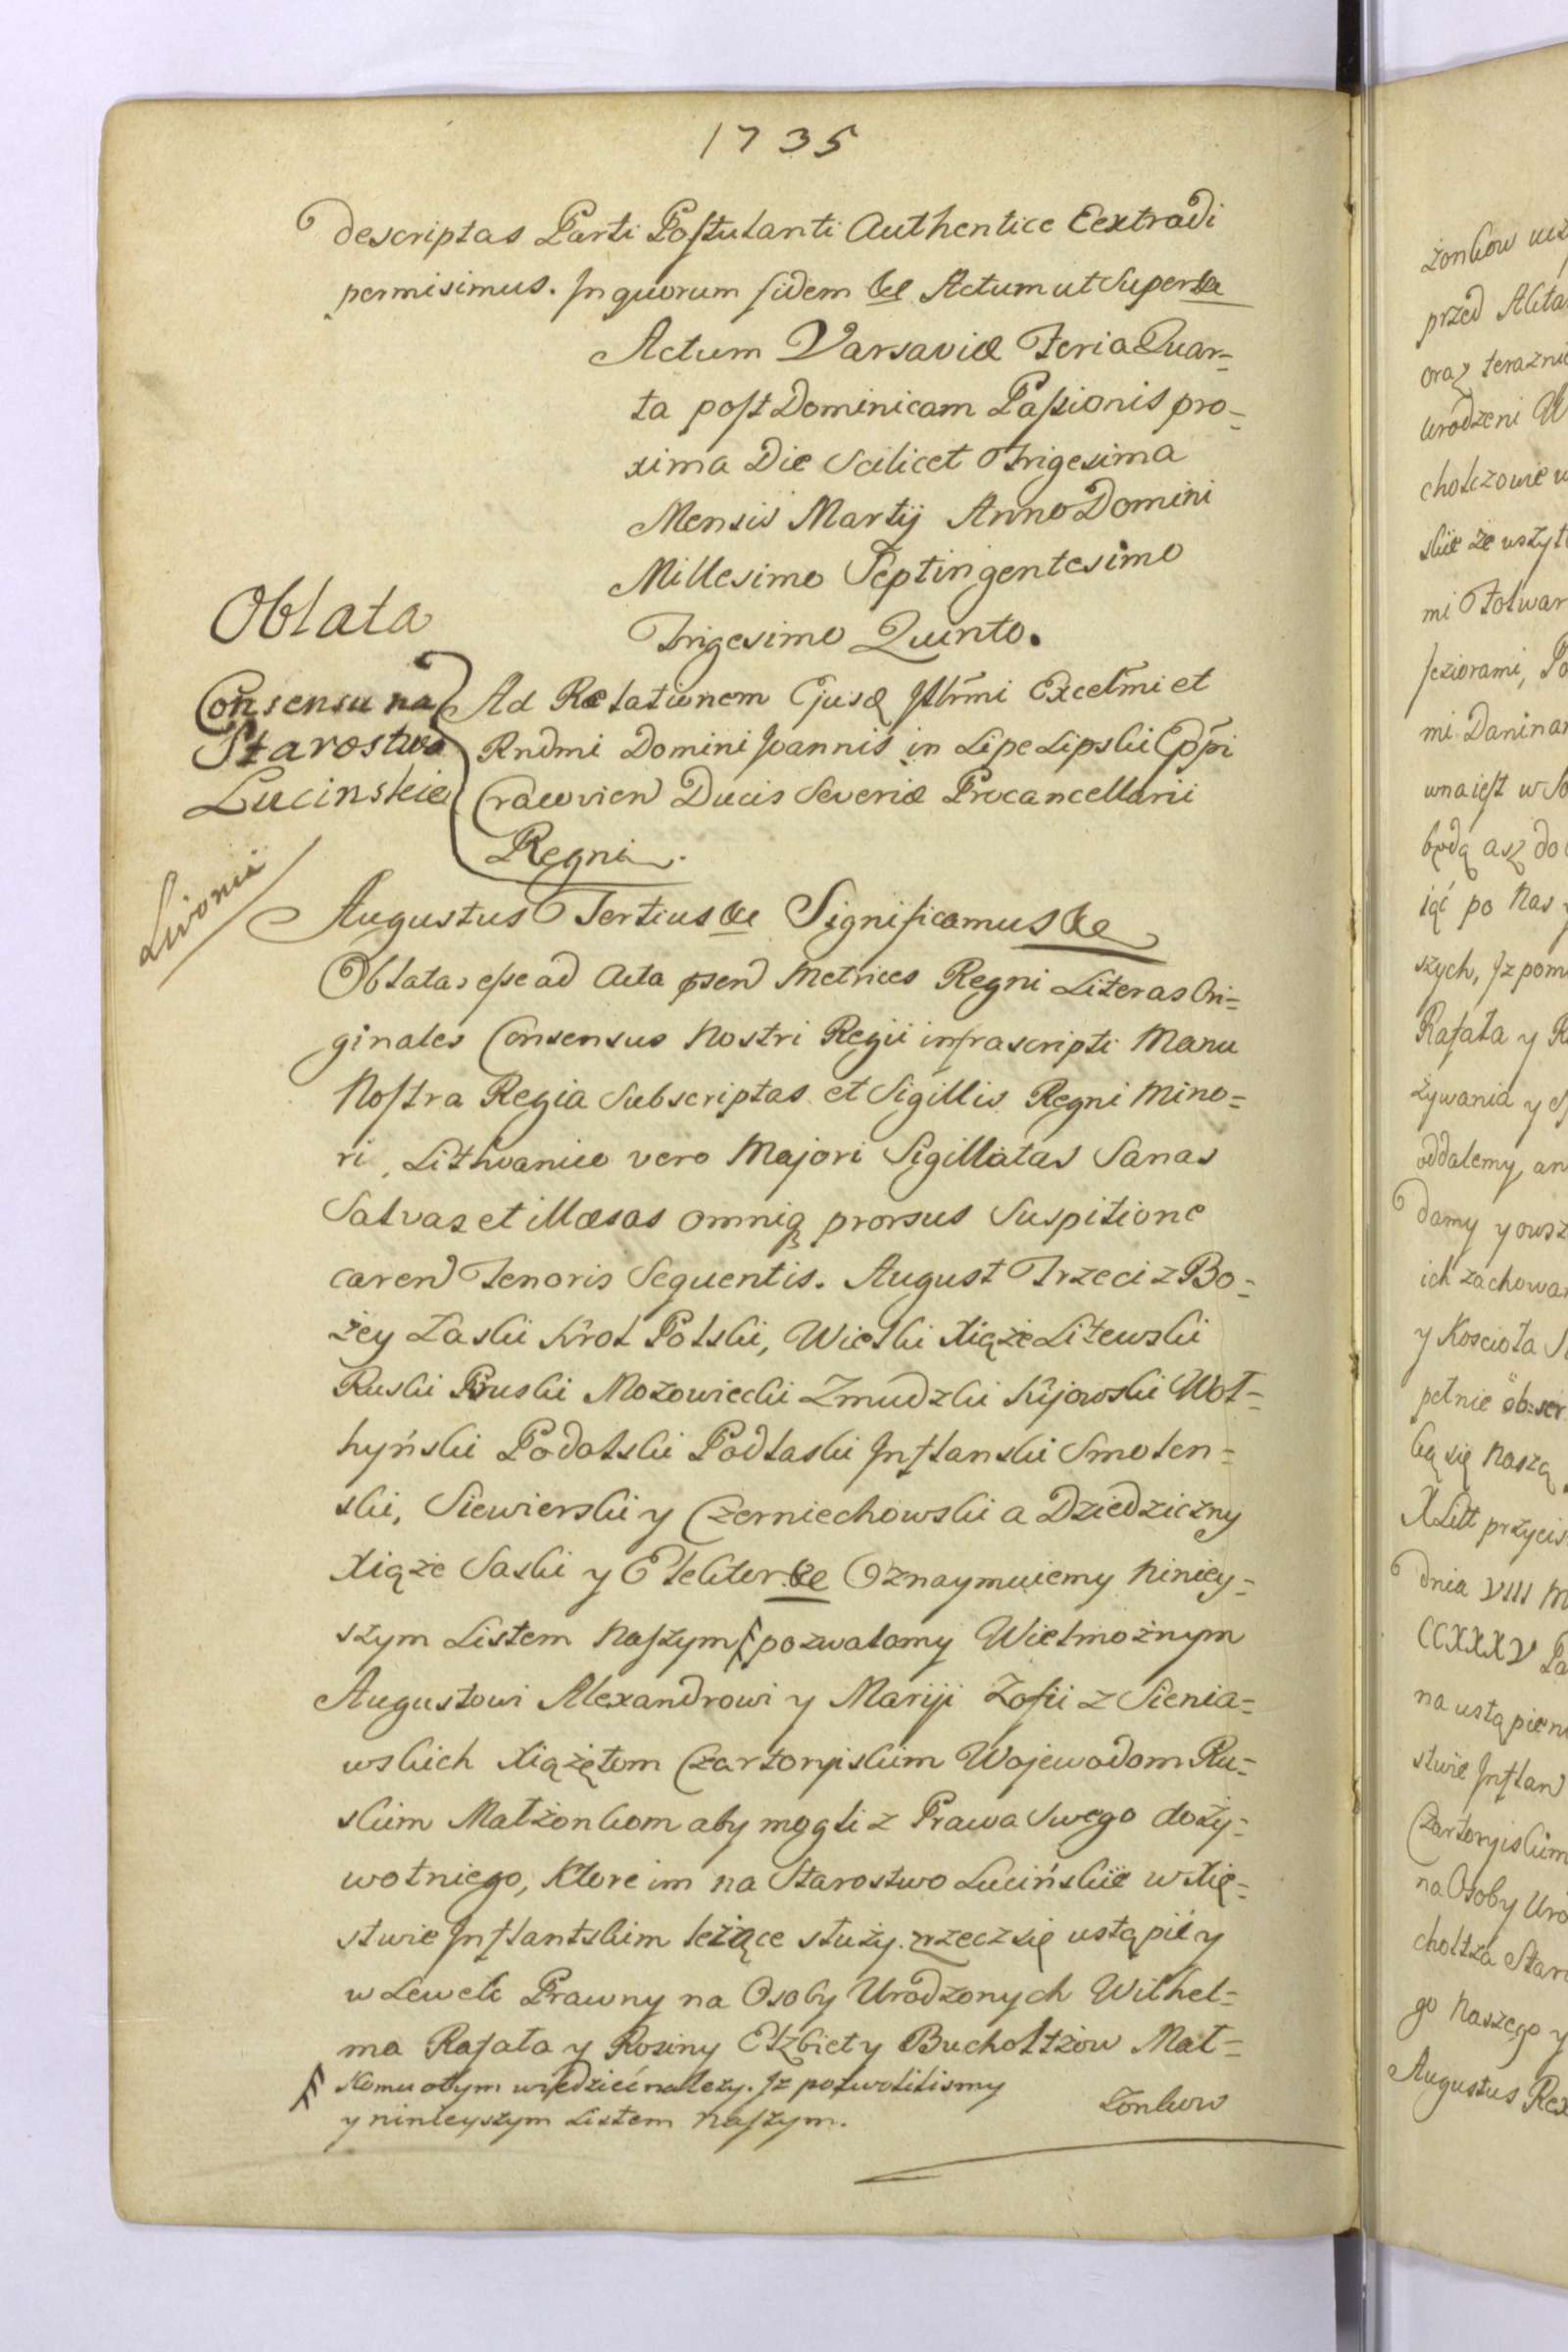 1735
descriptas Parti Postulanti Authentice Eextradi
permisimus. In quorum fidem &c Actum ut Supra
Actum Varsaviæ Feria Quar=
ta post Dominicam Passionis pro=
xima Die Scilicet Trigesima
Mensis Martij Anno Domini
Millesimo Septingentesimo
Trigesimo Quinto.
Oblata
Consensu na
Starostwo
Lucinskie
Livonii
Ad Relationem Ejusq Illrmi Excelmi et
Rndmi Domini Joannis in Lipe Lipski Eppi
Cracovien Ducis Severiæ Procancellarii
Regni.
Augustus Tertius &c Significamus &c
Oblatas esse ad Acta psen Metrices Regni Literas Ori=
ginales Consensus Nostri Regii infrascripti Manu
Nostra Regia Subscriptas et Sigillis Regni Mino=
ri, Lithvanico vero Majori Sigillatas Sanas
Salvas et illæsas omniq prorsus Suspitione
caren Tenoris Sequentis. August Trzeci z Bo=
żey Łaski Krol Polski, Wielki Xiąże Litewski
Ruski Pruski Mazowiecki Zmudzki Kijowski Woł=
hyński Podolski Podlaski Inflanski Smolen=
ski, Siewierski y Czerniechowski a Dziedziczny
Xiąże Saski y Elektor &c Oznaymuiemy niniey=
szym Listem Naszym pozwalamy Wielmożnym
Augustowi Alexandrowi y Mariji Zofii z Sienia=
wskich Xiążętom Czartoryiskim Wojewodom Ru=
skim Małżonkom aby mogli z Prawa Swego doży=
wotniego, Ktore im na Starostwo Lucińskie w Xię=
stwie Inflantskim leżące służy. zrzecz się ustąpić y
w Lewek Prawny na Osoby Urodzonych Wilhel=
ma Rafała y Rosiny Elzbiety Bucholtzow Mał=
Komu otym wiedzieć należy. Iz pozwolilismy
y ninieyszym Listem Naszym.
żonkow
żonkow
przed
oraz
urodzeni
skie że wszyt
mi Folwar
Jeziorami, Po
mi Danina
będą asz do
iąć po Nas
szych, Iz pom
Rafała y R
żywania y
oddalemy, an
damy y owsz
ich zachowa
y Koscioła
pełnie
bą się Naszą
XLitt przycis
dnia VIII M
CCXXXV
na ustąpieni
stwie Inflan
Czartoryiskim
na Osoby Uro
choltza Star
go Naszego y
Augustus Rex